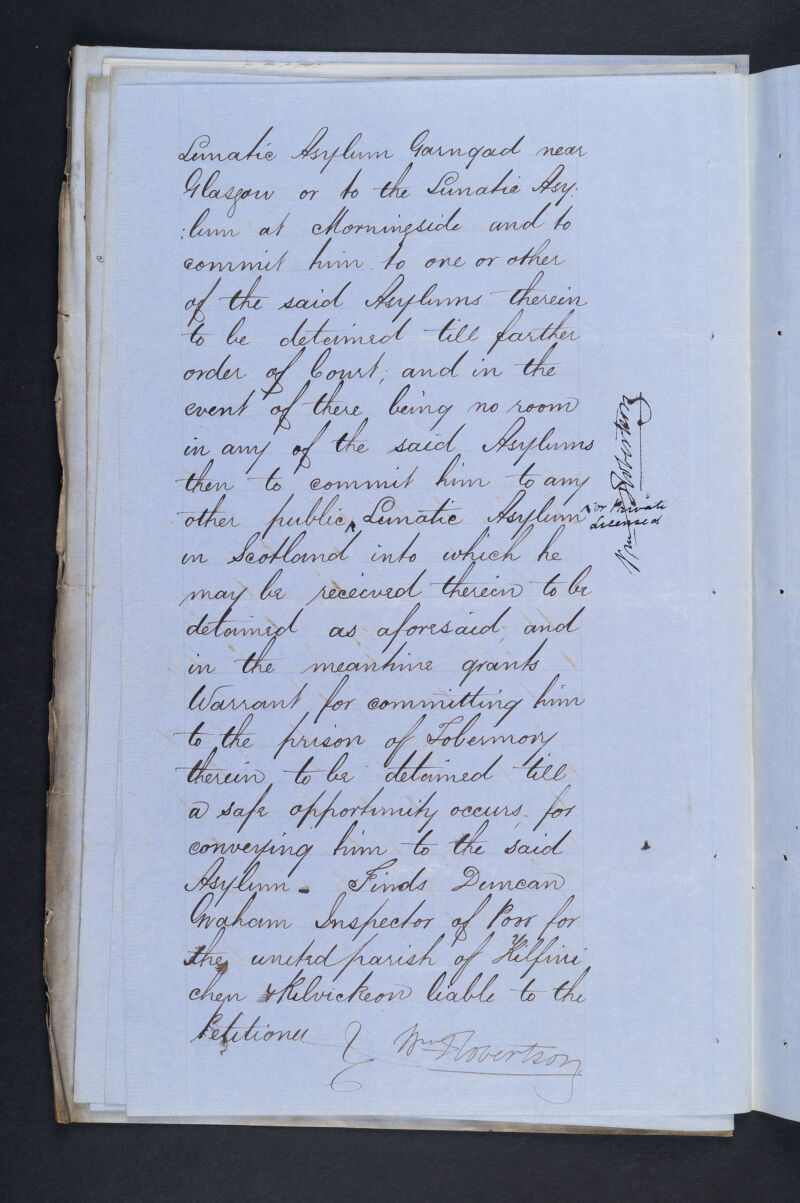 Lunatic Asylum Garngad near
Glasgow or to the Lunatic Asy:
:lum at Morningside and to
commit him to one or other
of the said Asylums therein
to be detained till farther
order of Court; and in the
event of there being no room
in any of the said Asylums
then to commit him to any
other public ^ Lunatic Asylum
in Scotland into which he
may be received therein to be
detained as aforesaid, and
in the meantime grants
Warrant for committing him
to the prison of Tobermory
therein to be detained till
a safe opportunity occurs for
conveying him to the said
Asylum - Finds Duncan
Graham Inspector of Poor for
the united parish of Kilfini
chen & Kilvickeon liable to the
Petitioner
Wm Robertson
x or Private
Licensed
Wm Robertson